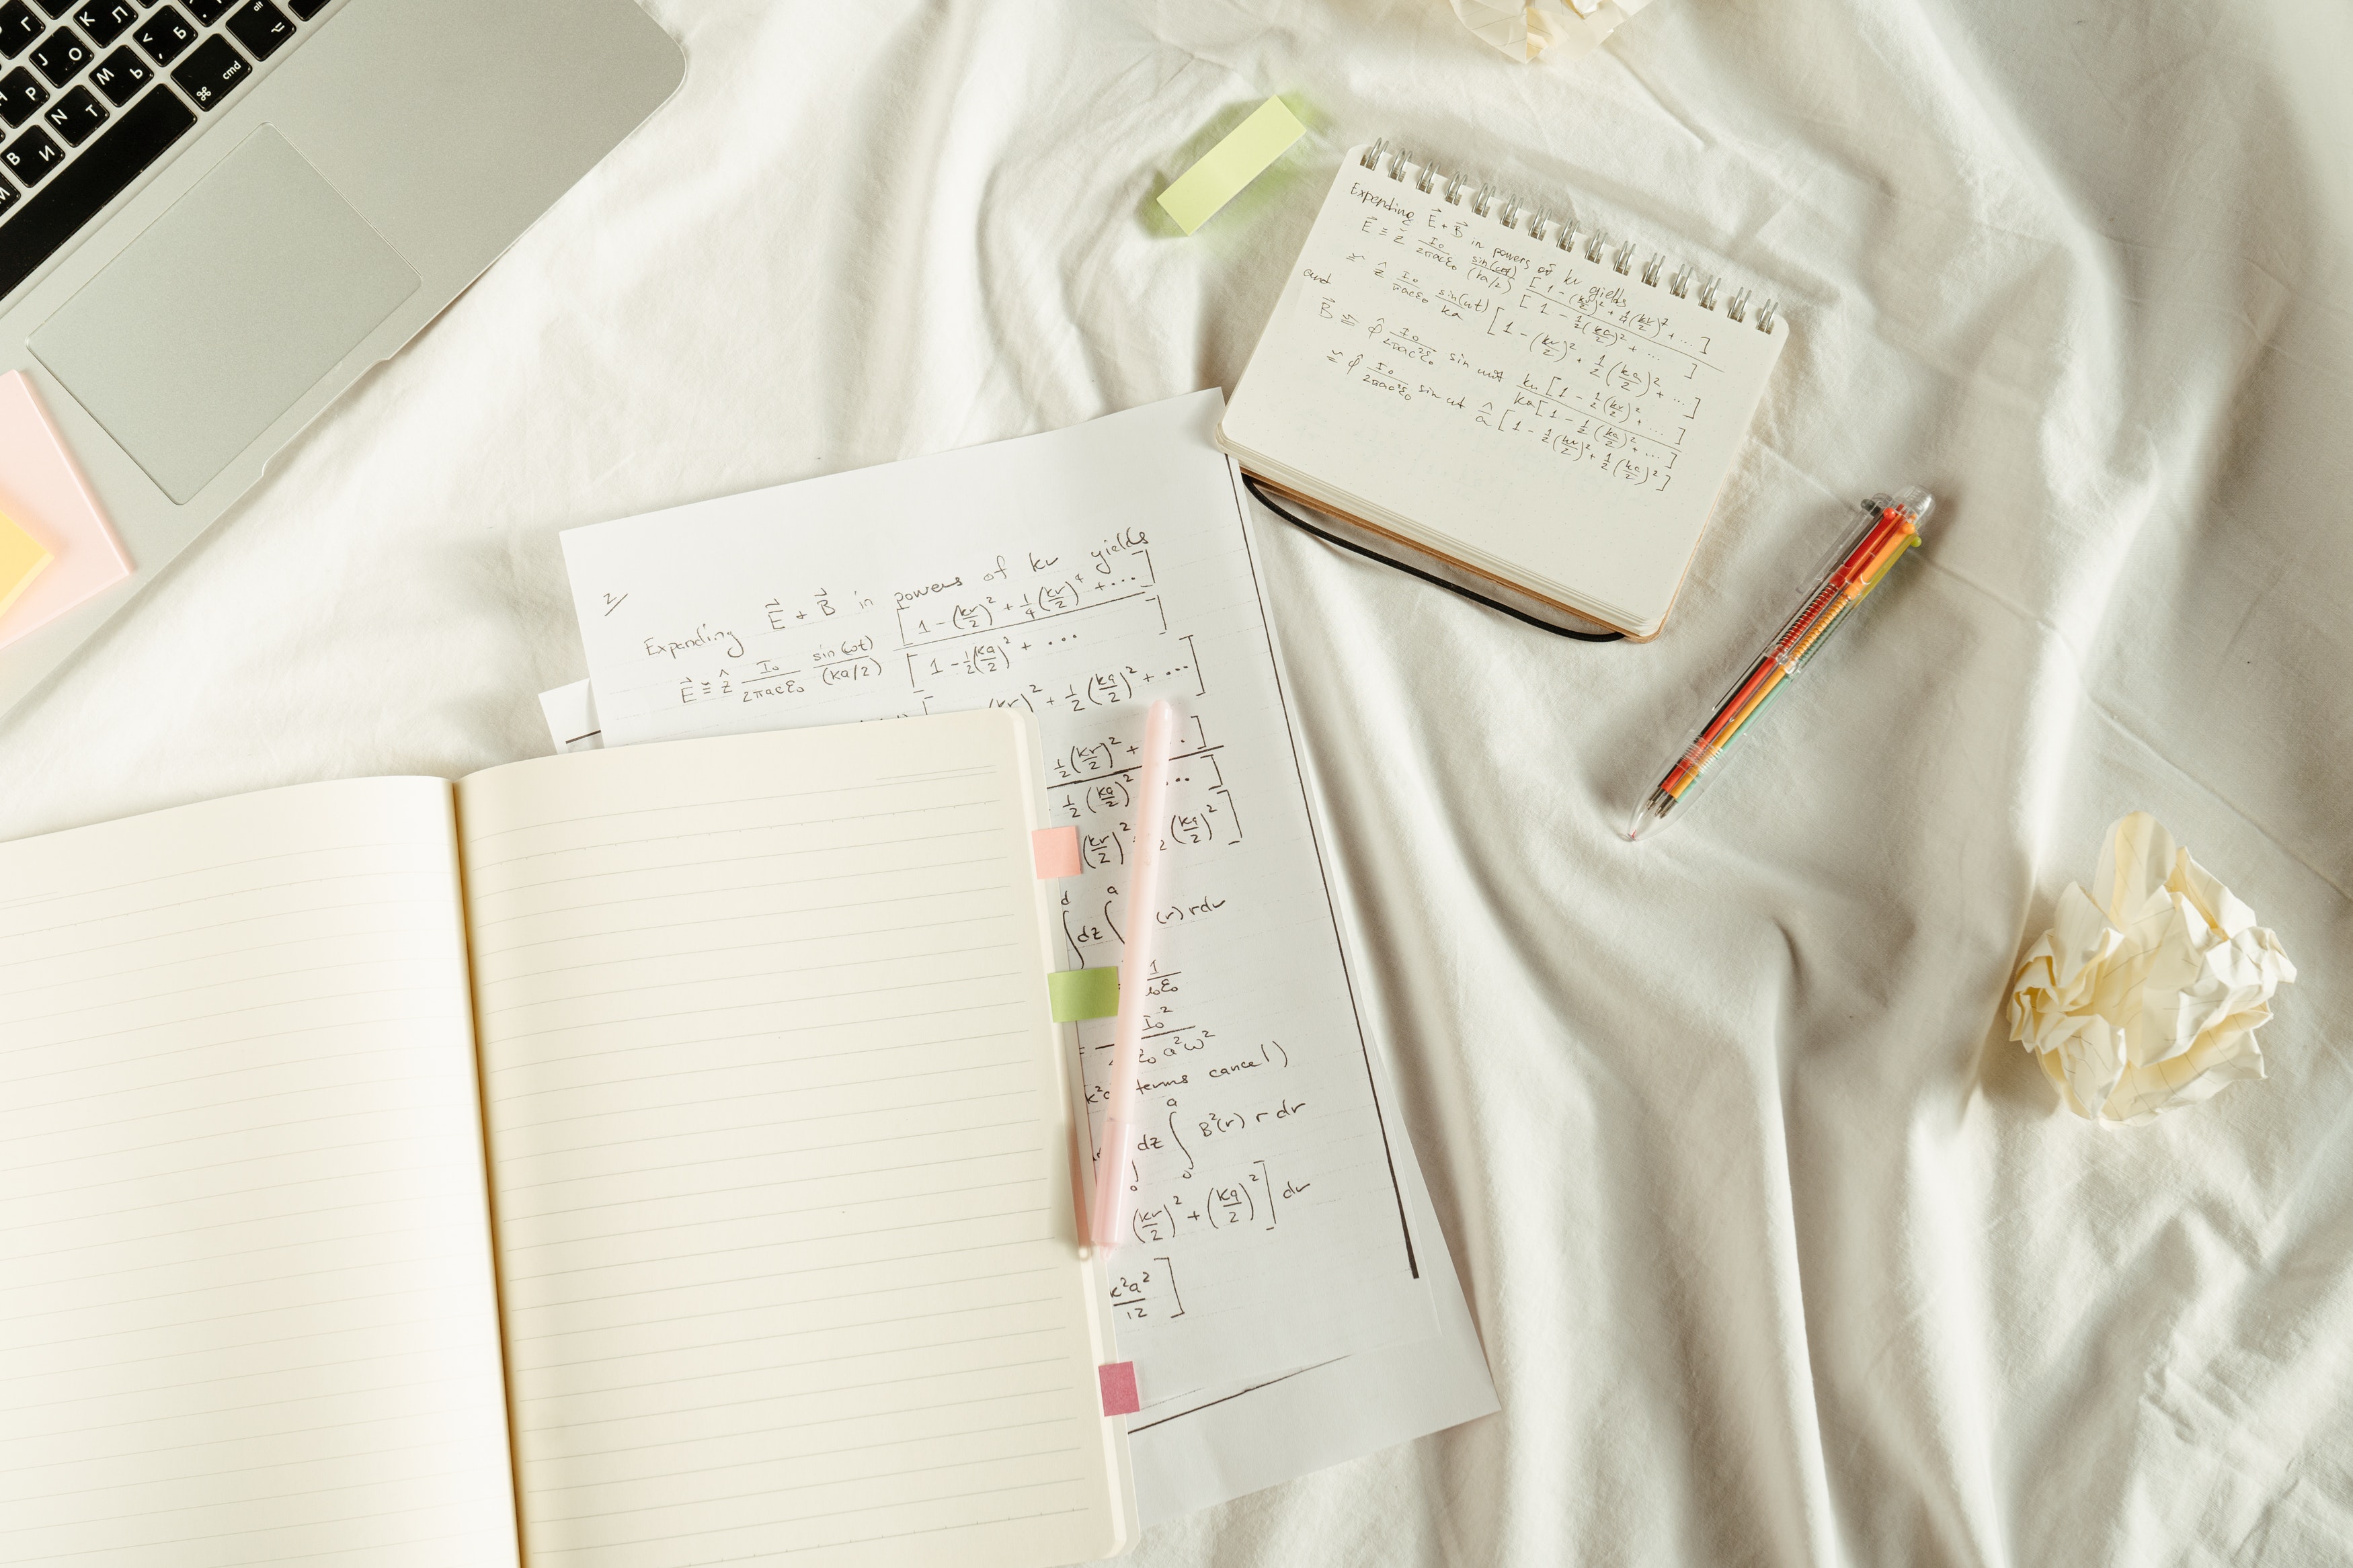 Г К Л < Б alt ⌥
J О , cmd ⌘
Р М Ь
N Т
В И
М
Expending E⃗ + B⃗ in powers of kr yields
E⃗ ≅ ẑ I₀/2πacε₀ sin(ωt)/(ka/2) [1 - (kr/2)² + 1/4(kr/2)² + ...]/[1 - 1/2(ka/2)² + ...]
≅ ẑ I₀/πacε₀ sin(ωt)/ka [1 - (kr/2)² + 1/2(ka/2)² + ...]
and
B⃗ ≅ φ̂ I₀/2πac²ε₀ sin ωt kr[1 - 1/2(kr/2)² + ...]/ka[1 - 1/2(ka/2)² + ...]
≅ φ̂ I₀/2πac²ε₀ sin ωt r/a [1 - 1/2(kr/2)² + 1/2(ka/2)²]
2/
Expending E⃗ + B⃗ in powers of kr yields
E⃗ ≅ ẑ I₀/2πacε₀ sin(ωt)/(ka/2) [1 - (kr/2)² + 1/4(kr/2)⁴ + ....]/[1 - 1/2(ka/2)² + ...]
(kr)² + 1/2(ka/2)² + ...]
1/2(kr/2)² + ..]
1/2(ka/2)² ...]
(kr/2)² (ka/2)²]
∫ᵈ dz ∫ᵃ (r) r dr
= 1/ε₀
= I₀²/ε₀ a²ω²
k²a terms cancel)
∫₀ dz ∫₀ᵃ B²(r) r dr
(kr/2)² + (ka/2)²] dr
k²a²/12]